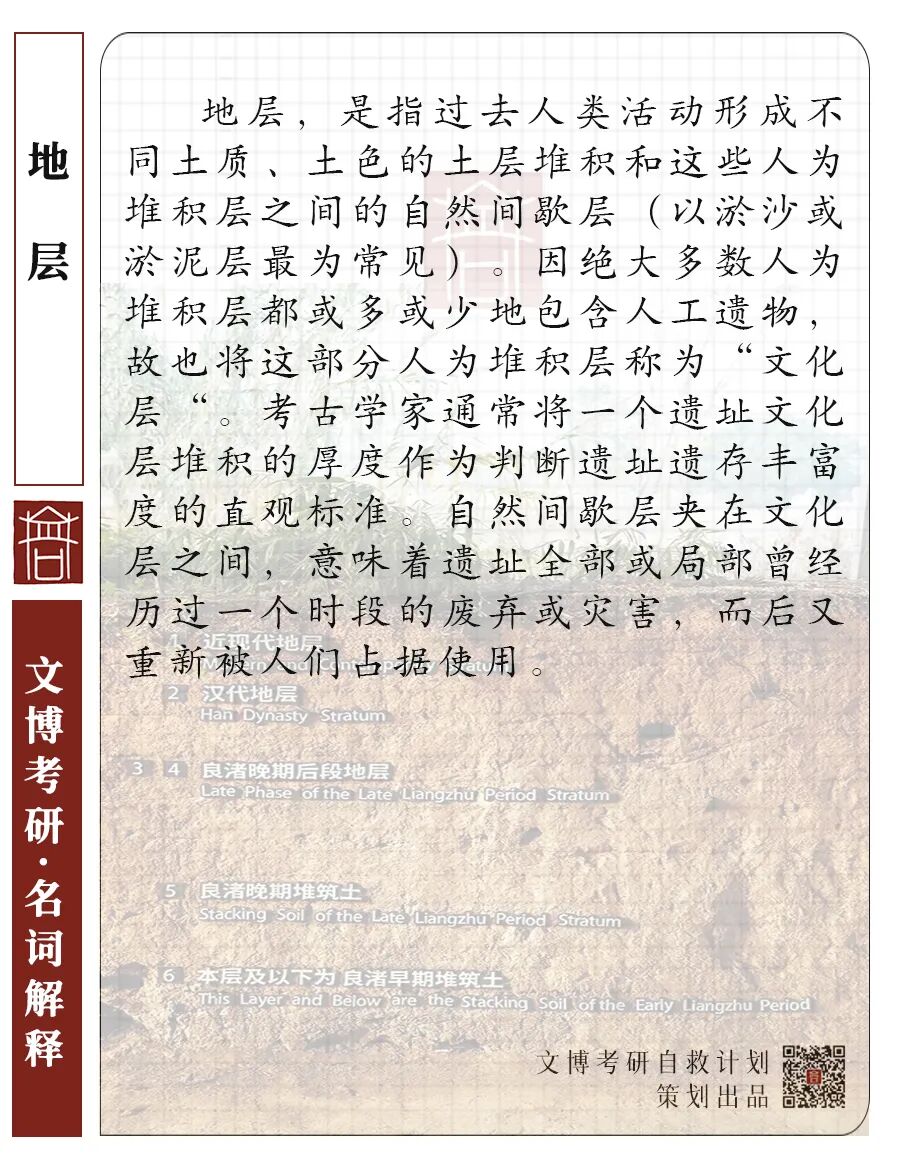 地层
文博考研·名词解释
地层，是指过去人类活动形成不
同土质、土色的土层堆积和这些人为
堆积层之间的自然间歇层（以淤沙或
淤泥层最为常见）。因绝大多数人为
堆积层都或多或少地包含人工遗物，
故也将这部分人为堆积层称为“文化
层“。考古学家通常将一个遗址文化
层堆积的厚度作为判断遗址遗存丰富
度的直观标准。自然间歇层夹在文化
层之间，意味着遗址全部或局部曾经
历过一个时段的废弃或灾害，而后又
重新被人们占据使用。
1 近现代地层
Modern and Contemporary Stratum
2 汉代地层
Han Dynasty Stratum
3 4 良渚晚期后段地层
Late Phase of the Late Liangzhu Period Stratum
5 良渚晚期堆筑土
Stacking Soil of the Late Liangzhu Period Stratum
6 本层及以下为 良渚早期堆筑土
This Layer and Below are the Stacking Soil of the Early Liangzhu Period
文博考研自救计划
策划出品